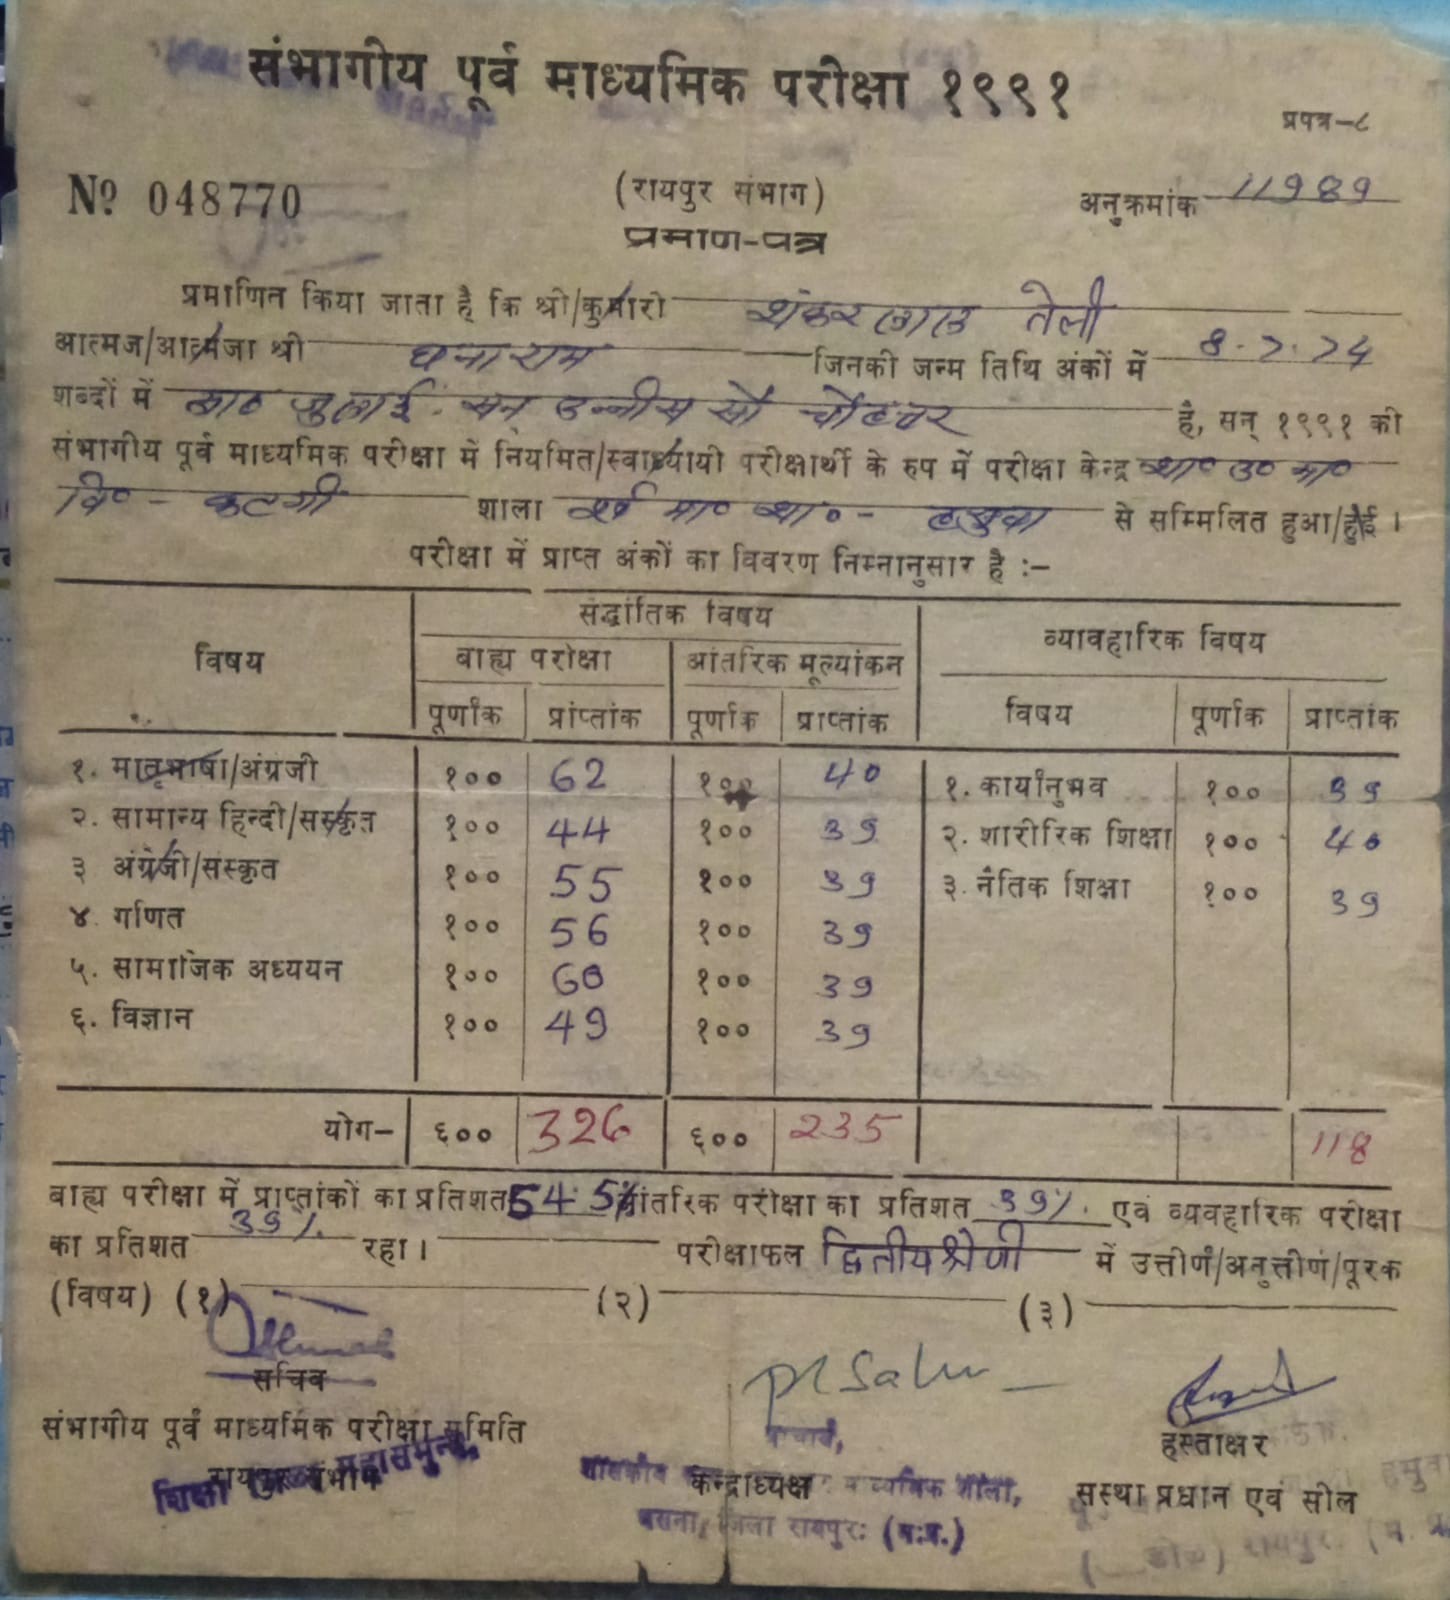 संभागीय पूर्व माध्यमिक परीक्षा १९९१
प्रपत्र-८
Nº 048770
(रायपुर संभाग)
अनुक्रमांक 11989
प्रमाण-पत्र
प्रमाणित किया जाता है कि श्री/कुमारी शंकर लाल तेली
आत्मज/आत्मजा श्री घनाराम जिनकी जन्म तिथि अंकों में 8.7.74
शब्दों में आठ जुलाई सन् उन्नीस सौ चौहत्तर है, सन् १९९१ की
संभागीय पूर्व माध्यमिक परीक्षा में नियमित/स्वाध्यायी परीक्षार्थी के रुप में परीक्षा केन्द्र शा० उ० मा०
वि० - कटगी शाला पूर्व मा० शा० - हसुवा से सम्मिलित हुआ/हुई ।
परीक्षा में प्राप्त अंकों का विवरण निम्नानुसार है :-
विषय सैद्धांतिक विषय व्यावहारिक विषय
बाह्य परीक्षा आंतरिक मूल्यांकन
पूर्णांक प्राप्तांक पूर्णांक प्राप्तांक विषय पूर्णांक प्राप्तांक
१. मातृभाषा/अंग्रजी १०० 62 १०० 40 १. कार्यानुभव १०० 39
२. सामान्य हिन्दी/संस्कृत १०० 44 १०० 39 २. शारीरिक शिक्षा १०० 40
३ अंग्रेजी/संस्कृत १०० 55 १०० 39 ३. नैतिक शिक्षा १०० 39
४. गणित १०० 56 १०० 39
५. सामाजिक अध्ययन १०० 60 १०० 39
६. विज्ञान १०० 49 १०० 39
योग- ६०० 326 ६०० 235 118
बाह्य परीक्षा में प्राप्तांकों का प्रतिशत 54.5% आंतरिक परीक्षा का प्रतिशत 39%. एवं व्यवहारिक परीक्षा
का प्रतिशत 39%. रहा । परीक्षाफल द्वितीय श्रेणी में उत्तीर्ण/अनुत्तीर्ण/पूरक
(विषय) (१) (२) (३)
सचिव
संभागीय पूर्व माध्यमिक परीक्षा समिति
रायपुर संभाग
शिक्षा महासमुन्द
PL Sahu
प्राचार्य,
केन्द्राध्यक्ष
शासकीय माध्यमिक शाला,
जिला रायपुर: (म.प्र.)
हस्ताक्षर
संस्था प्रधान एवं सील
रायपुर